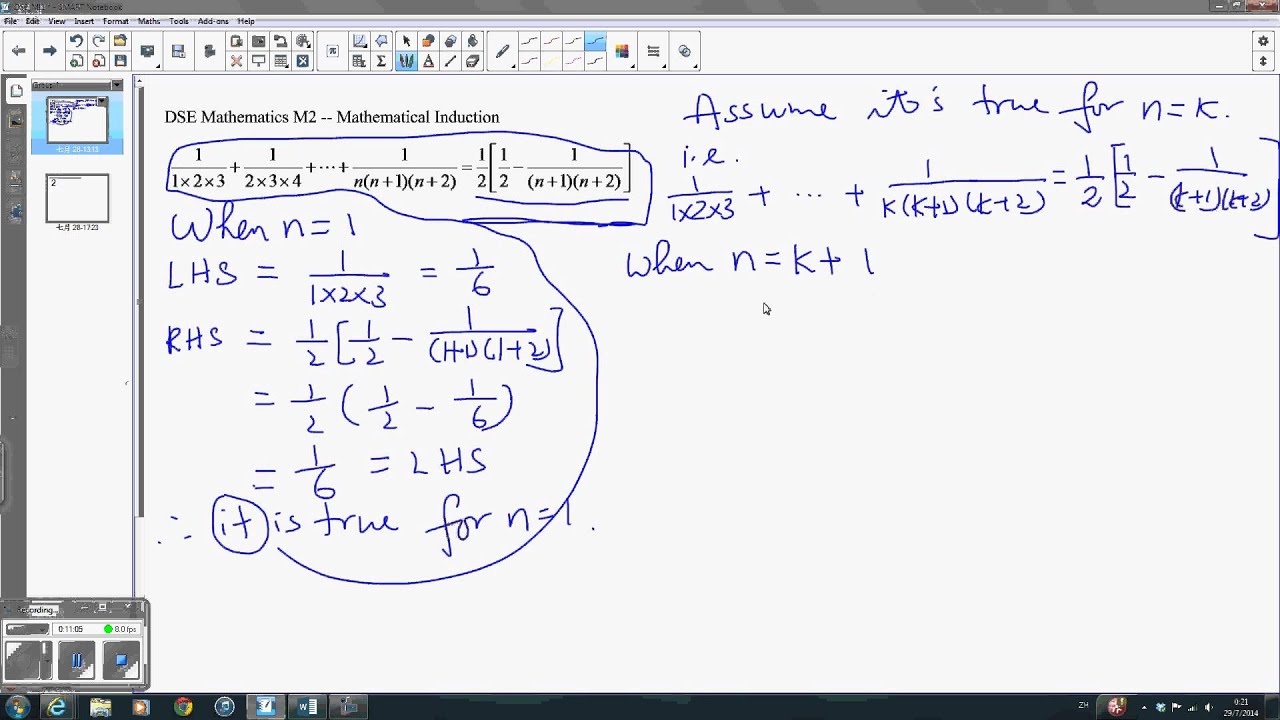 SMART Notebook
File Edit View Insert Format Maths Tools Add-ons Help
Group 1
七月 28-13:13
2
七月 28-17:23
DSE Mathematics M2 -- Mathematical Induction
1/(1×2×3) + 1/(2×3×4) + ⋯ + 1/(n(n+1)(n+2)) = 1/2 [1/2 − 1/((n+1)(n+2))]
When n = 1
LHS = 1/(1×2×3) = 1/6
RHS = 1/2 [1/2 − 1/((1+1)(1+2))]
= 1/2 (1/2 − 1/6)
= 1/6 = LHS
∴ it is true for n=1.
Assume it's true for n=k.
i.e.
1/(1×2×3) + ... + 1/(k(k+1)(k+2)) = 1/2 [1/2 − 1/((k+1)(k+2))]
When n = k + 1
Recording...
0:11:05 8.0 fps
ZH
0:21
29/7/2014